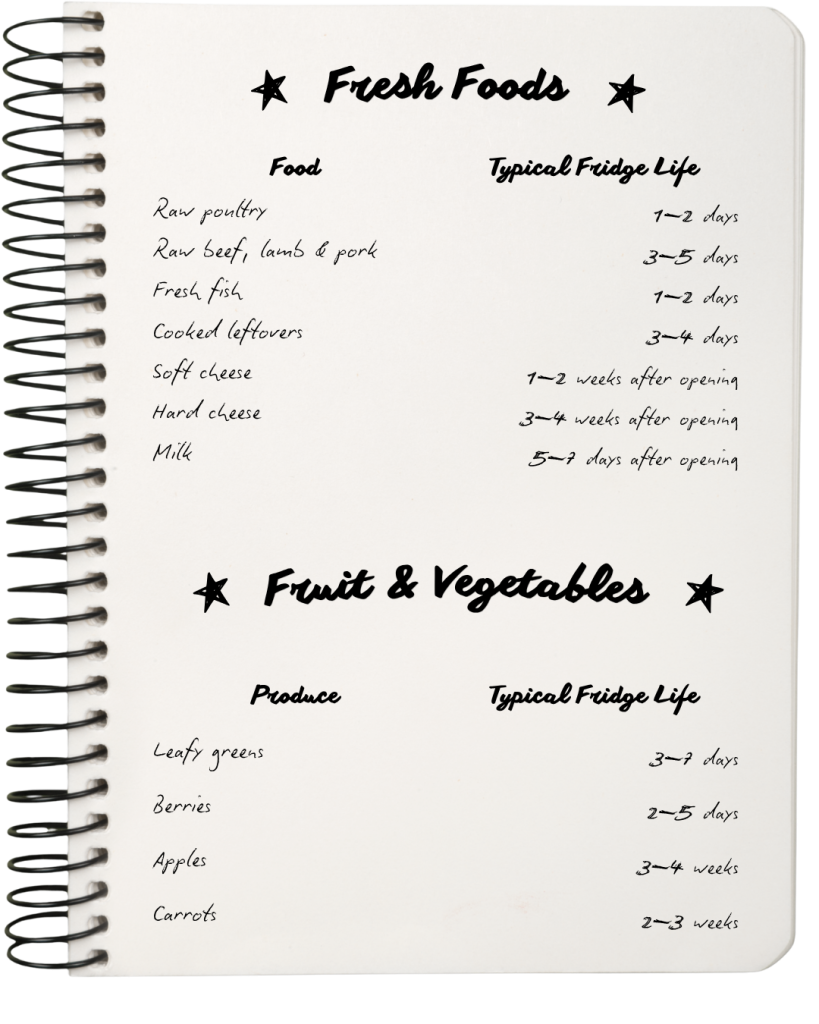 Fresh Foods
Food Typical Fridge Life
Raw poultry 1–2 days
Raw beef, lamb & pork 3–5 days
Fresh fish 1–2 days
Cooked leftovers 3–4 days
Soft cheese 1–2 weeks after opening
Hard cheese 3–4 weeks after opening
Milk 5–7 days after opening
Fruit & Vegetables
Produce Typical Fridge Life
Leafy greens 3–7 days
Berries 2–5 days
Apples 3–4 weeks
Carrots 2–3 weeks